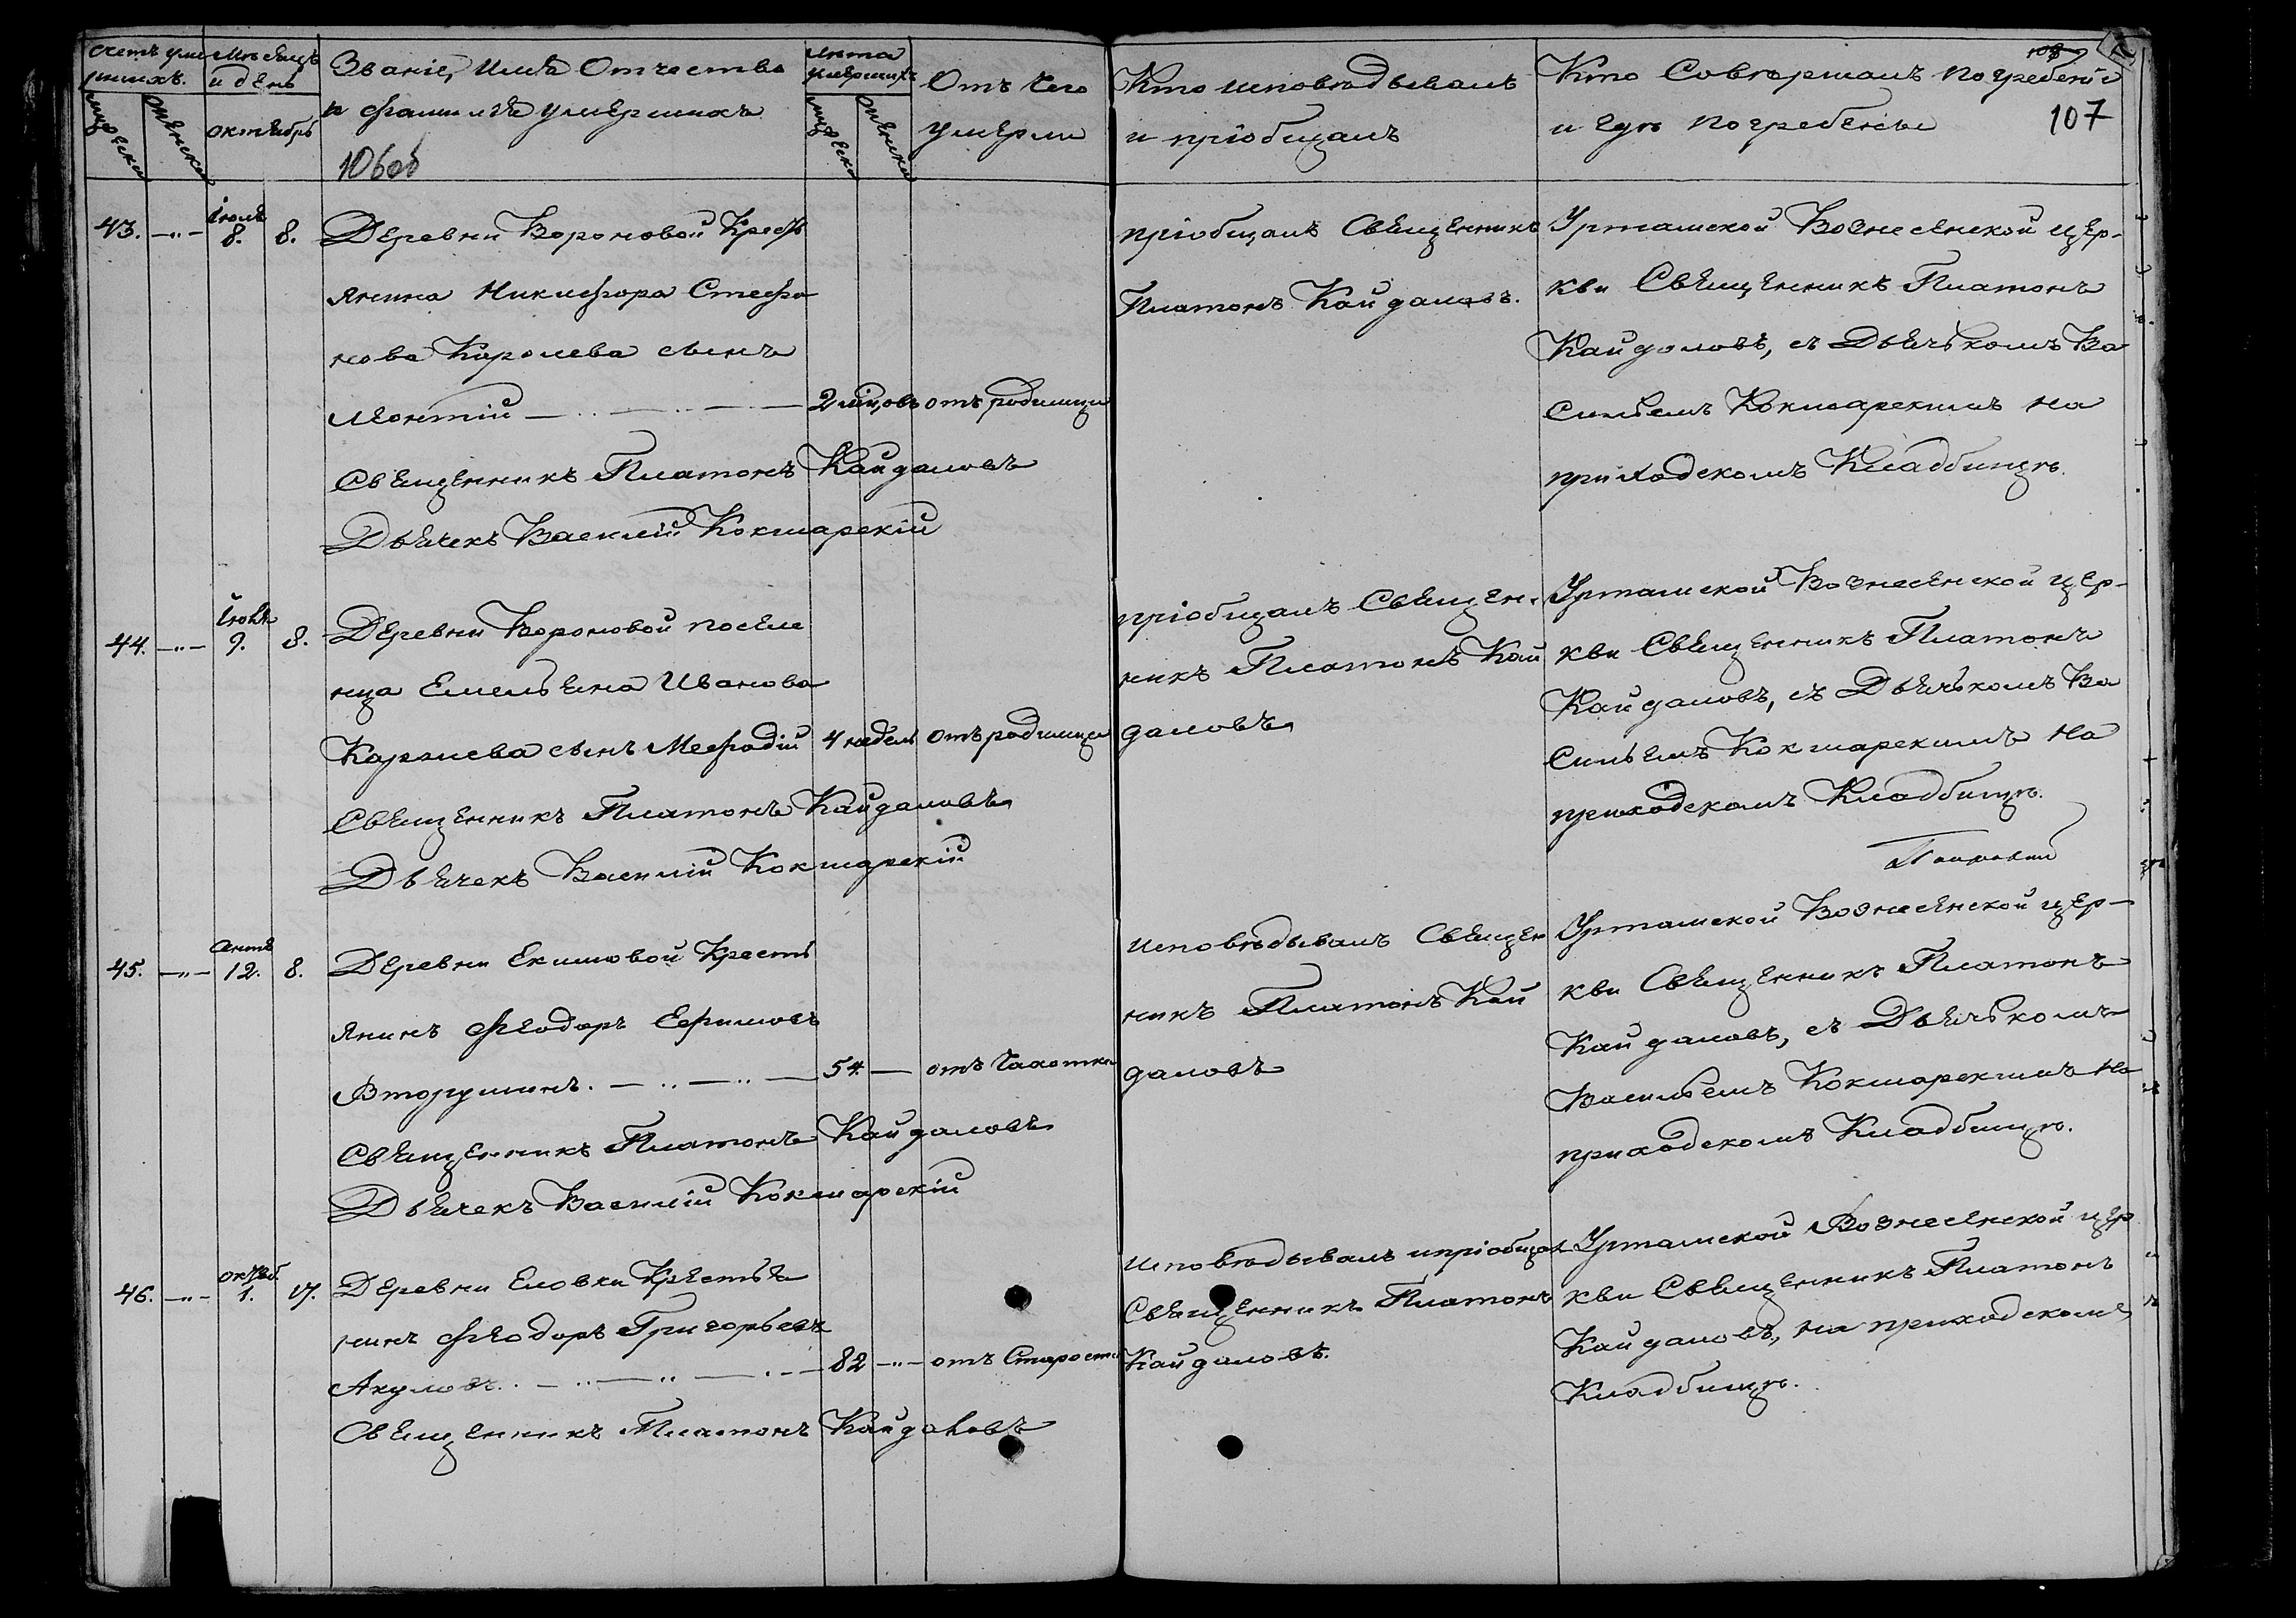 Счетъ умершихъ.
Мѣсяцъ и день
Октябрь
Званіе, Имя Отчество
и Фамилія умершихъ
106об
Лѣта умершихъ
Отъ чего
умерли
Кто исповѣдывалъ
и пріобщалъ
Кто Совершалъ погребеніе
и гдѣ погребены
107
43. —〃— Іюля 8. 8.
Деревни Вороновой Кресть
янина Никифора Стефа
нова Королева сынъ
Леонтій
2 мѣцовъ
отъ родимца
Священникъ Платонъ Кайдаловъ
Дьячекъ Василій Кокшарскій
пріобщалъ Священникъ
Платонъ Кайдаловъ.
Урташской Вознесенской цер-
кви Священникъ Платонъ
Кайдаловъ, съ Дьячькомъ Ва
сильемъ Кокшарскимъ на
приходскомъ Кладбищѣ.
44. —〃— 9. 8.
Деревни Вороновой поселе
нца Емельяна Иванова
Карпиева сынъ Мефодій
4 недель
отъ родимца
Священникъ Платонъ Кайдаловъ
Дьячекъ Василій Кокшарскій
пріобщалъ Священ-
никъ Платонъ Кай
даловъ
Урташской Вознесенской цер-
кви Священникъ Платонъ
Кайдаловъ, съ Дьячькомъ Ва
сильемъ Кокшарскимъ на
приходскомъ Кладбищѣ.
45. —〃— Сентя 12. 8.
Деревни Екимовой Кресть
янинъ Ѳеодоръ Ефимовъ
Вторушинъ.
54. —
отъ чахотки
Священникъ Платонъ Кайдаловъ
Дьячекъ Василій Кокшарскій
исповѣдывалъ Священ
никъ Платонъ Кай
даловъ
Урташской Вознесенской цер-
кви Священникъ Платонъ
Кайдаловъ, съ Дьячькомъ
Васильемъ Кокшарскимъ на
приходскомъ Кладбищѣ.
46. —〃— Октяб. 1. 17.
Деревни Еловки Крестья
нинъ Ѳеодоръ Григорьевъ
Акуловъ.
82 —〃—
отъ Старости
Священникъ Платонъ Кайдаловъ
исповѣдывалъ и пріобщал
Священникъ Платонъ
Кайдаловъ.
Урташской Вознесенской цер
кви Священникъ Платонъ
Кайдаловъ, на приходскомъ
Кладбищѣ.